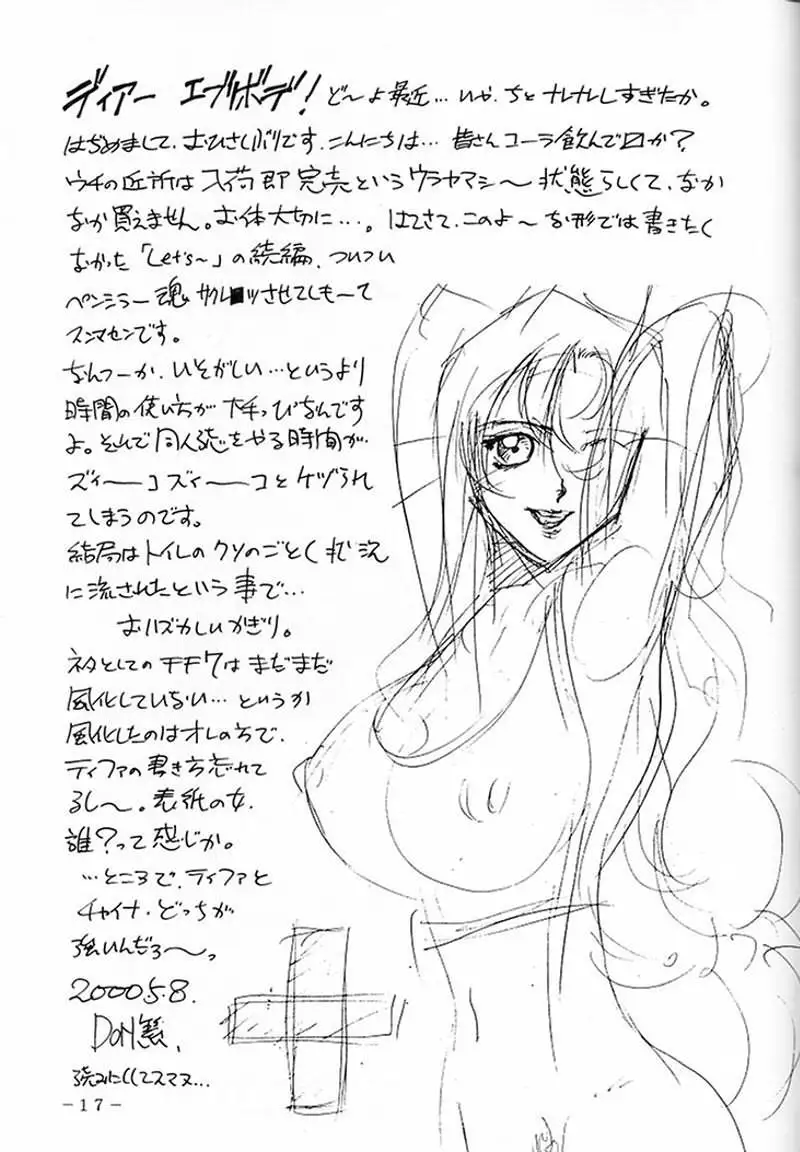 ディアー エブボデ！ ど～よ最近…いや、ちとナレナレしすぎたか。
はぢめまして、おひさしぶりです、こんにちは… 皆さんコーラ飲んでﾛか？
ウチの近所は入荷即完売というウラヤマシ～状態らしくて、なか
なか買えません。お体大切に…。はてさて、このよ～な形では書きたく
なかった「Let's～」の続編、ついつい
ペンシラー魂サクレ■ツさせてしもーて
スンマセンです。
なんつーか、いそがしい…というより
時間の使い方が下手っぴなんです
よ。そんで同人誌をやる時間が、
ズィーコズィーコとケヅられ
てしまうのです。
結局はトイレのクソのごとく状況
に流されたという事で…
おハズかしいかぎり。
ネタとしてのFF7はまだまだ
風化していない…というか
風化したのはオレのちで、
ティファの書き方忘れて
るし～。表紙の女、
誰？って感じか。
…ところで、ティファと
チャイナ、どっちが
強いんだろ～っ
2000.5.8.
DON繁,
読みにくくてスマヌ…
-17-